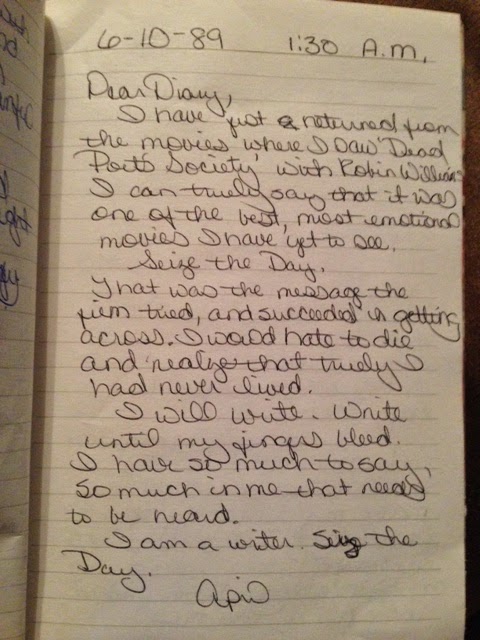 6-10-89 1:30 A.M.
Dear Diary,
I have just returned from
the movies where I saw "Dead
Poets Society" with Robin Williams
I can truely say that it was
one of the best, most emotional
movies I have yet to see.
Seize the Day.
That was the message the
film tried, and succeeded in getting
across. I would hate to die
and realize that truely I
had never lived.
I will write. Write
until my fingers bleed.
I have so much to say,
so much in me that needs
to be heard.
I am a writer. Seize the
Day.